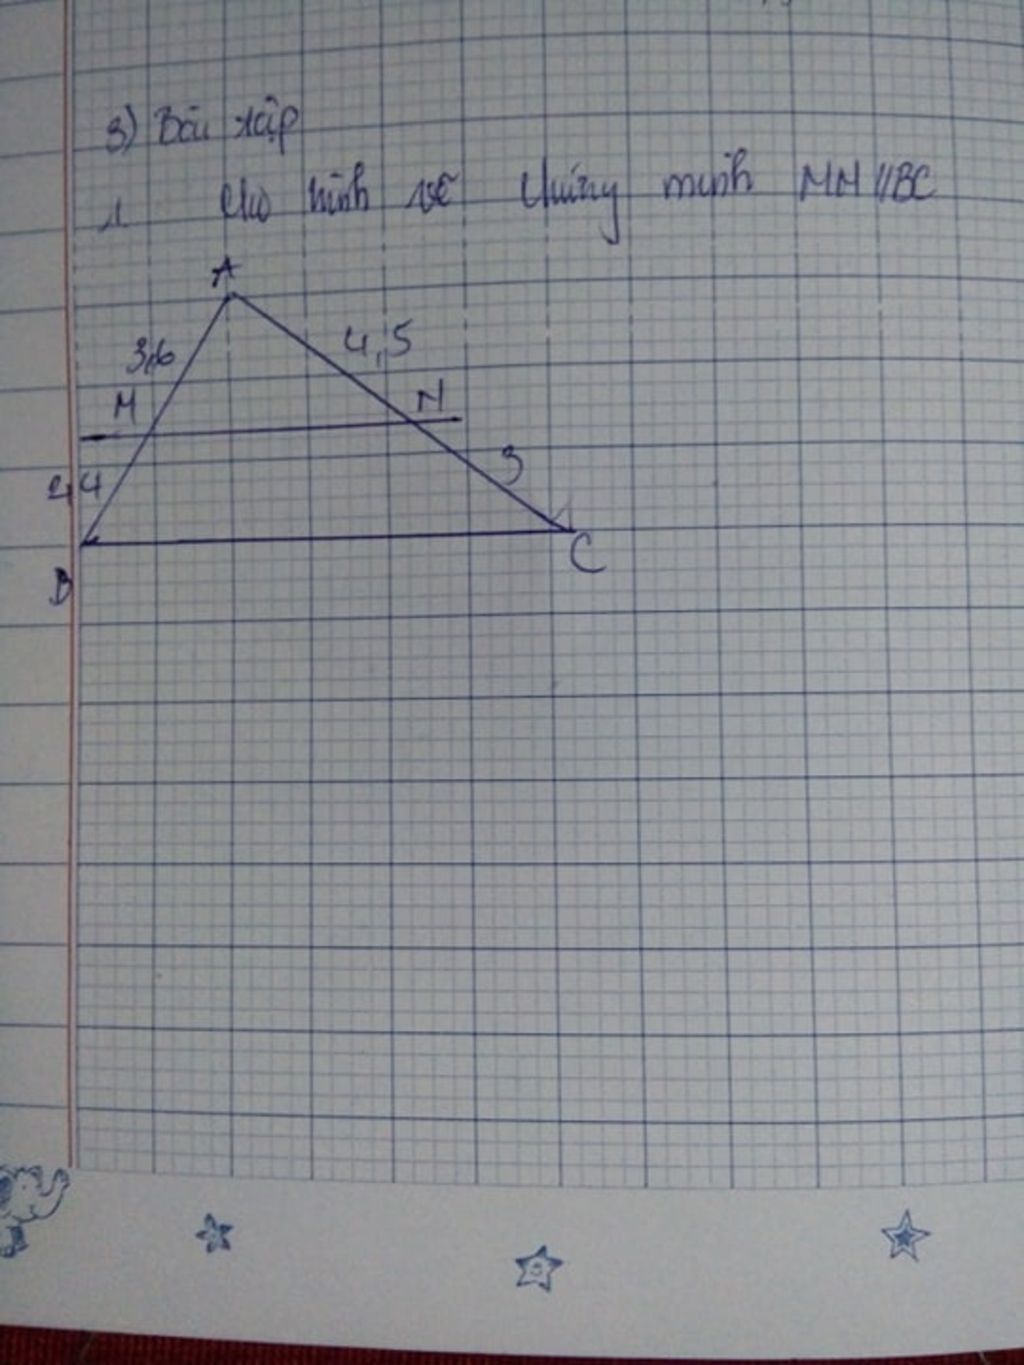 3) Bài tập
1 Cho hình vẽ Chứng minh MN // BC
A
3,6
4,5
M
N
2,4
3
B
C